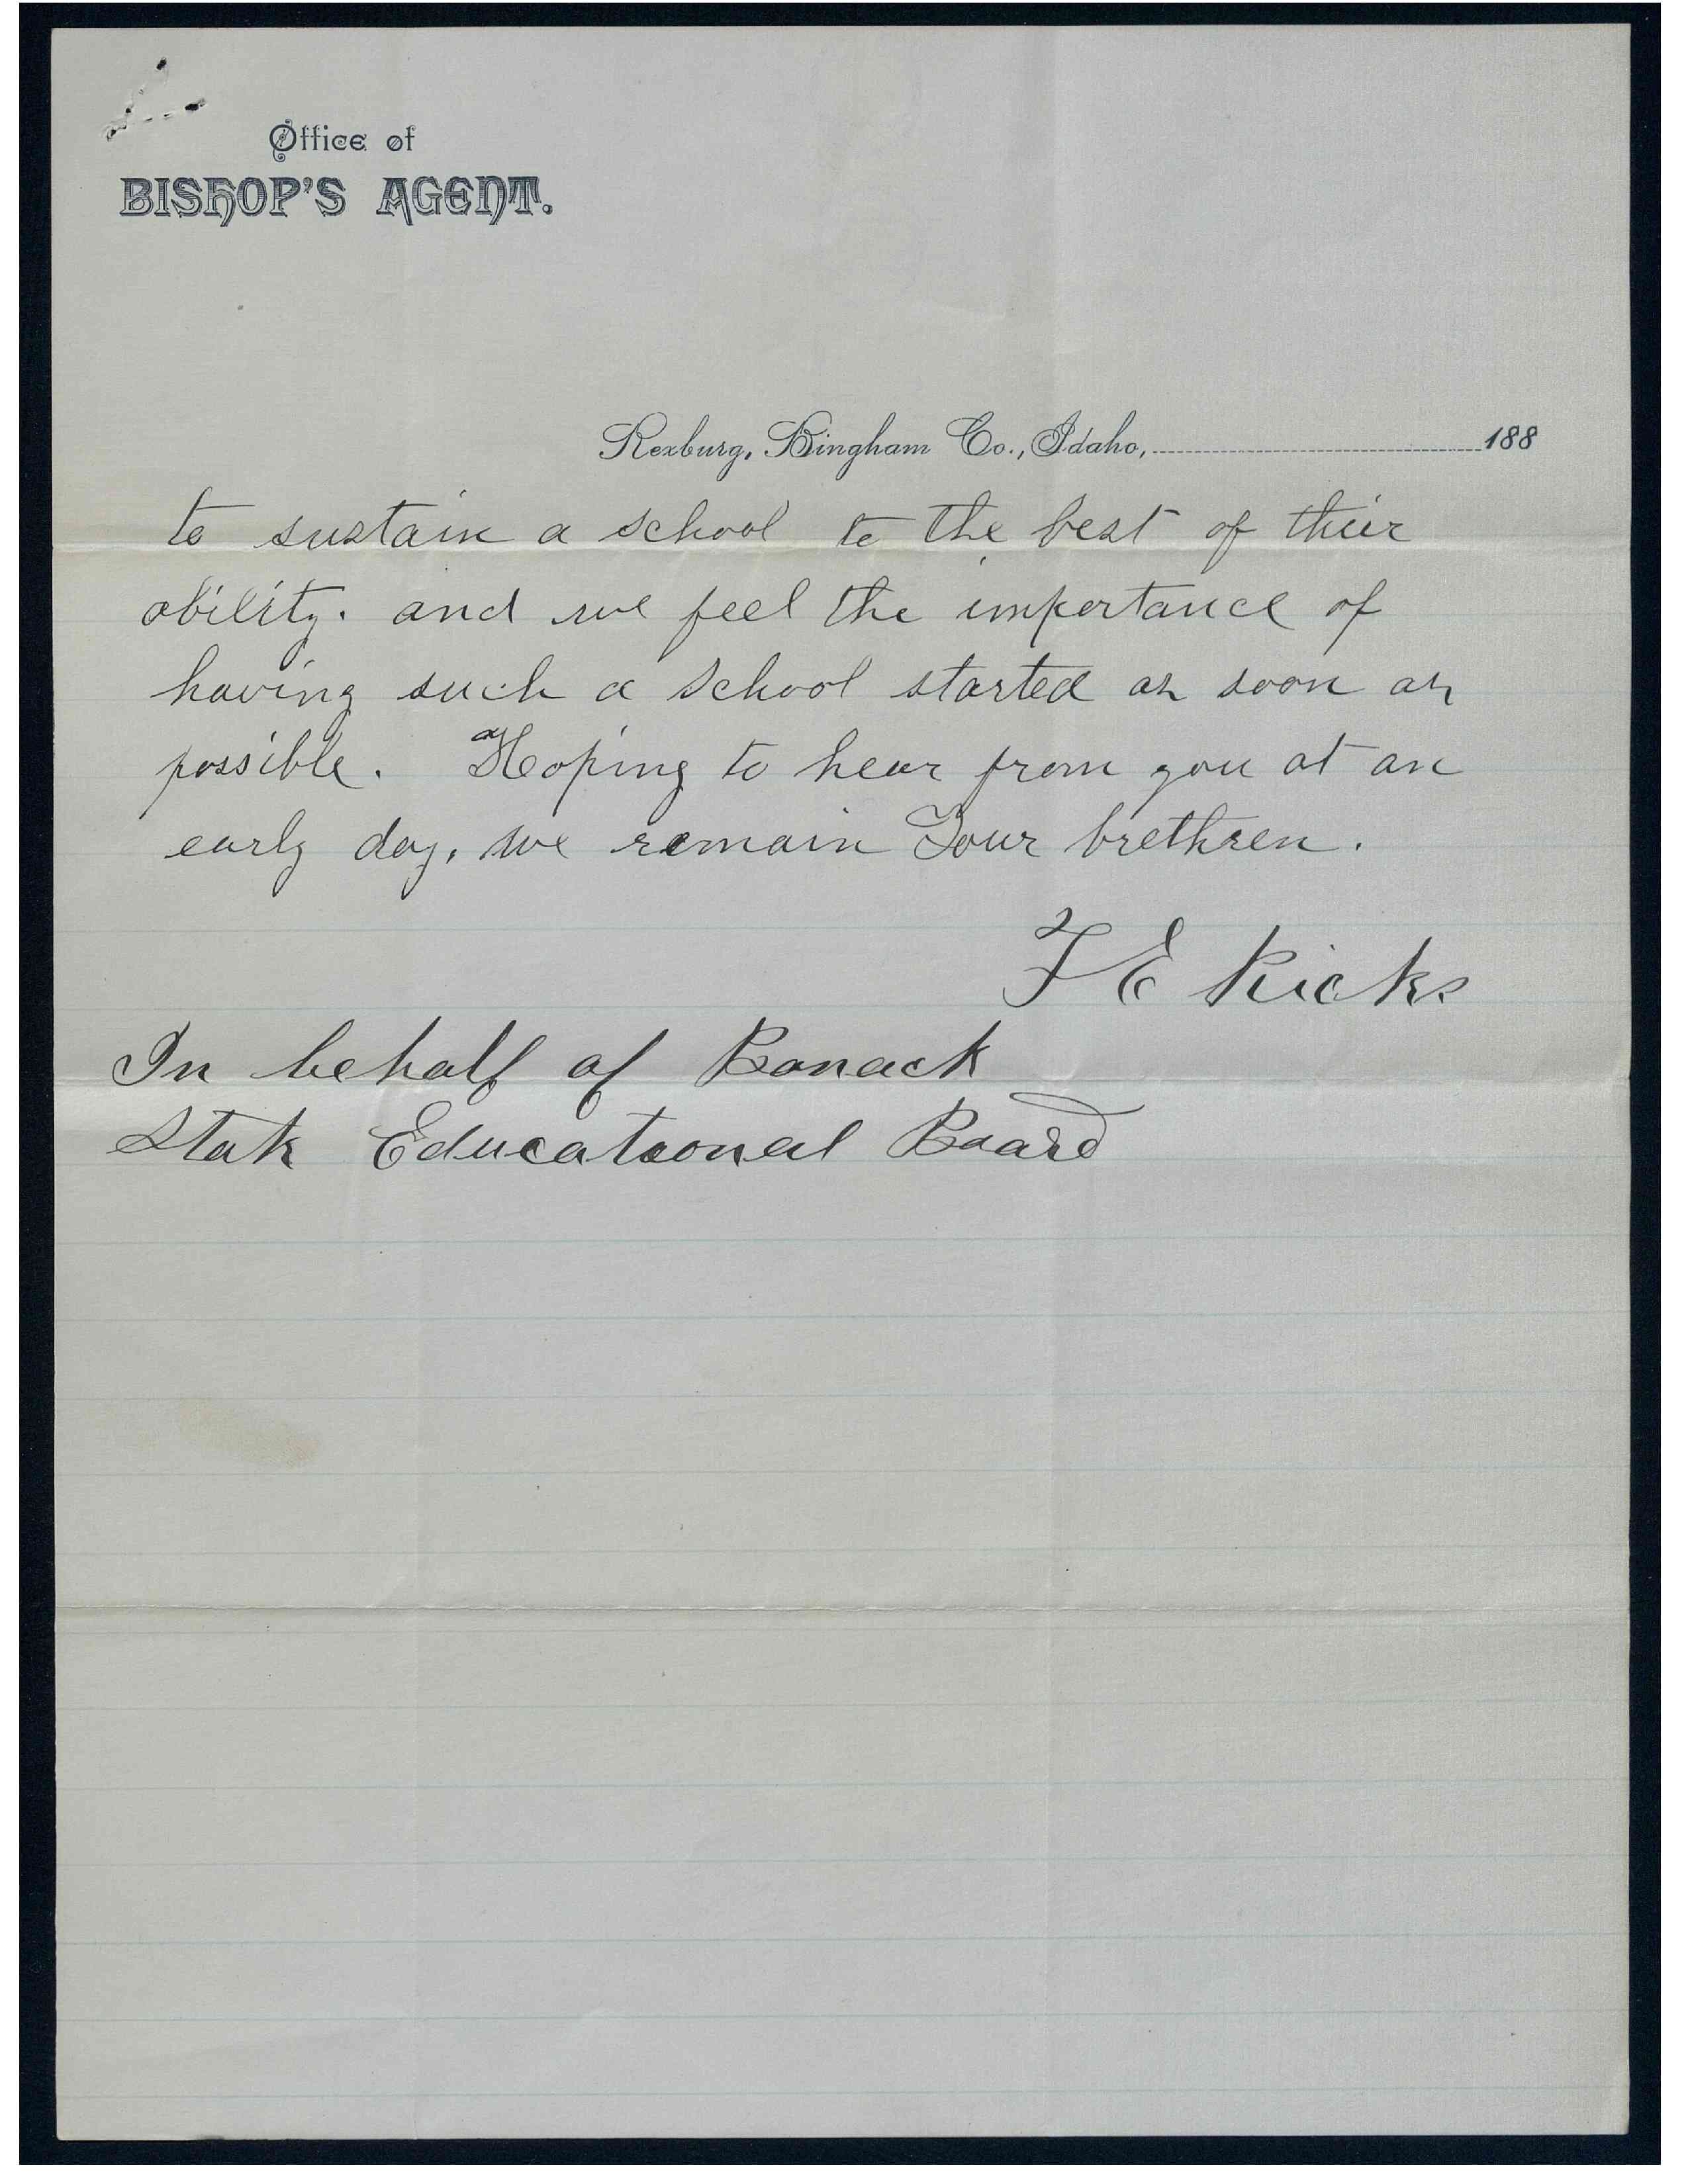 Office of
BISHOP'S AGENT.
Rexburg, Bingham Co., Idaho, 188
to sustain a school to the best of their
ability. and we feel the importance of
having such a school started as soon as
possible. Hoping to hear from you at an
early day, we remain Your brethren.
T E Ricks
In behalf of Banack
Stak Educational Board